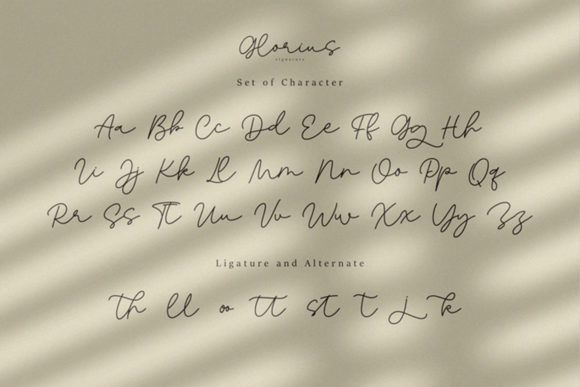 Glorius
signature
Set of Character
Aa Bb Cc Dd Ee Ff Gg Hh
Ii Jj Kk Ll Mm Nn Oo Pp Qq
Rr Ss Tt Uu Vv Ww Xx Yy Zz
Ligature and Alternate
Th ll oo tt st t L k